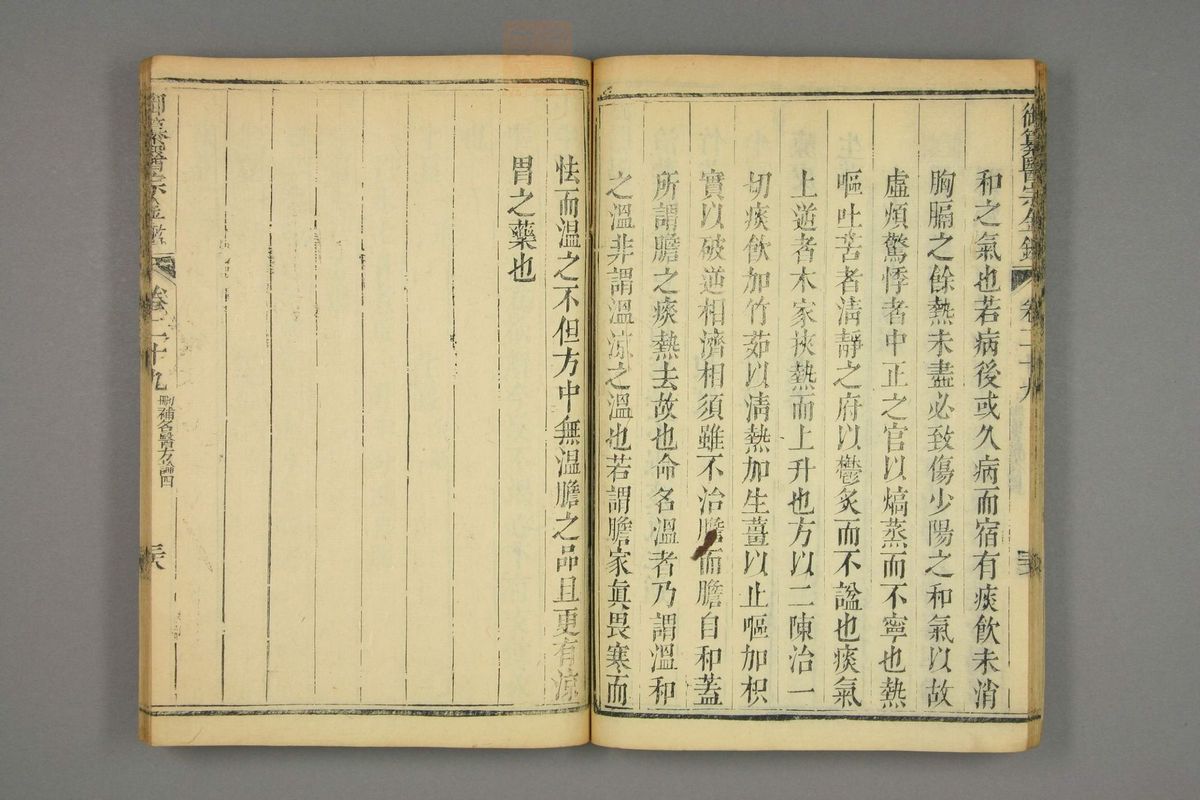 御纂醫宗金鑑 卷二十九
和之氣也若病後或久病而宿有痰飲未消
胸膈之餘熱未盡必致傷少陽之和氣以故
虛煩驚悸者中正之官以熇蒸而不寧也熱
嘔吐苦者清靜之府以鬱炙而不謐也痰氣
上逆者木家挾熱而上升也方以二陳治一
切痰飲加竹茹以清熱加生薑以止嘔加枳
實以破逆相濟相須雖不治膽而膽自和蓋
所謂膽之痰熱去故也命名溫者乃謂溫和
之溫非謂溫涼之溫也若謂膽家眞畏寒而
怯而溫之不但方中無溫膽之品且更有涼
胃之藥也
御纂醫宗金鑑 卷二十九 刪補名醫方論四 三六